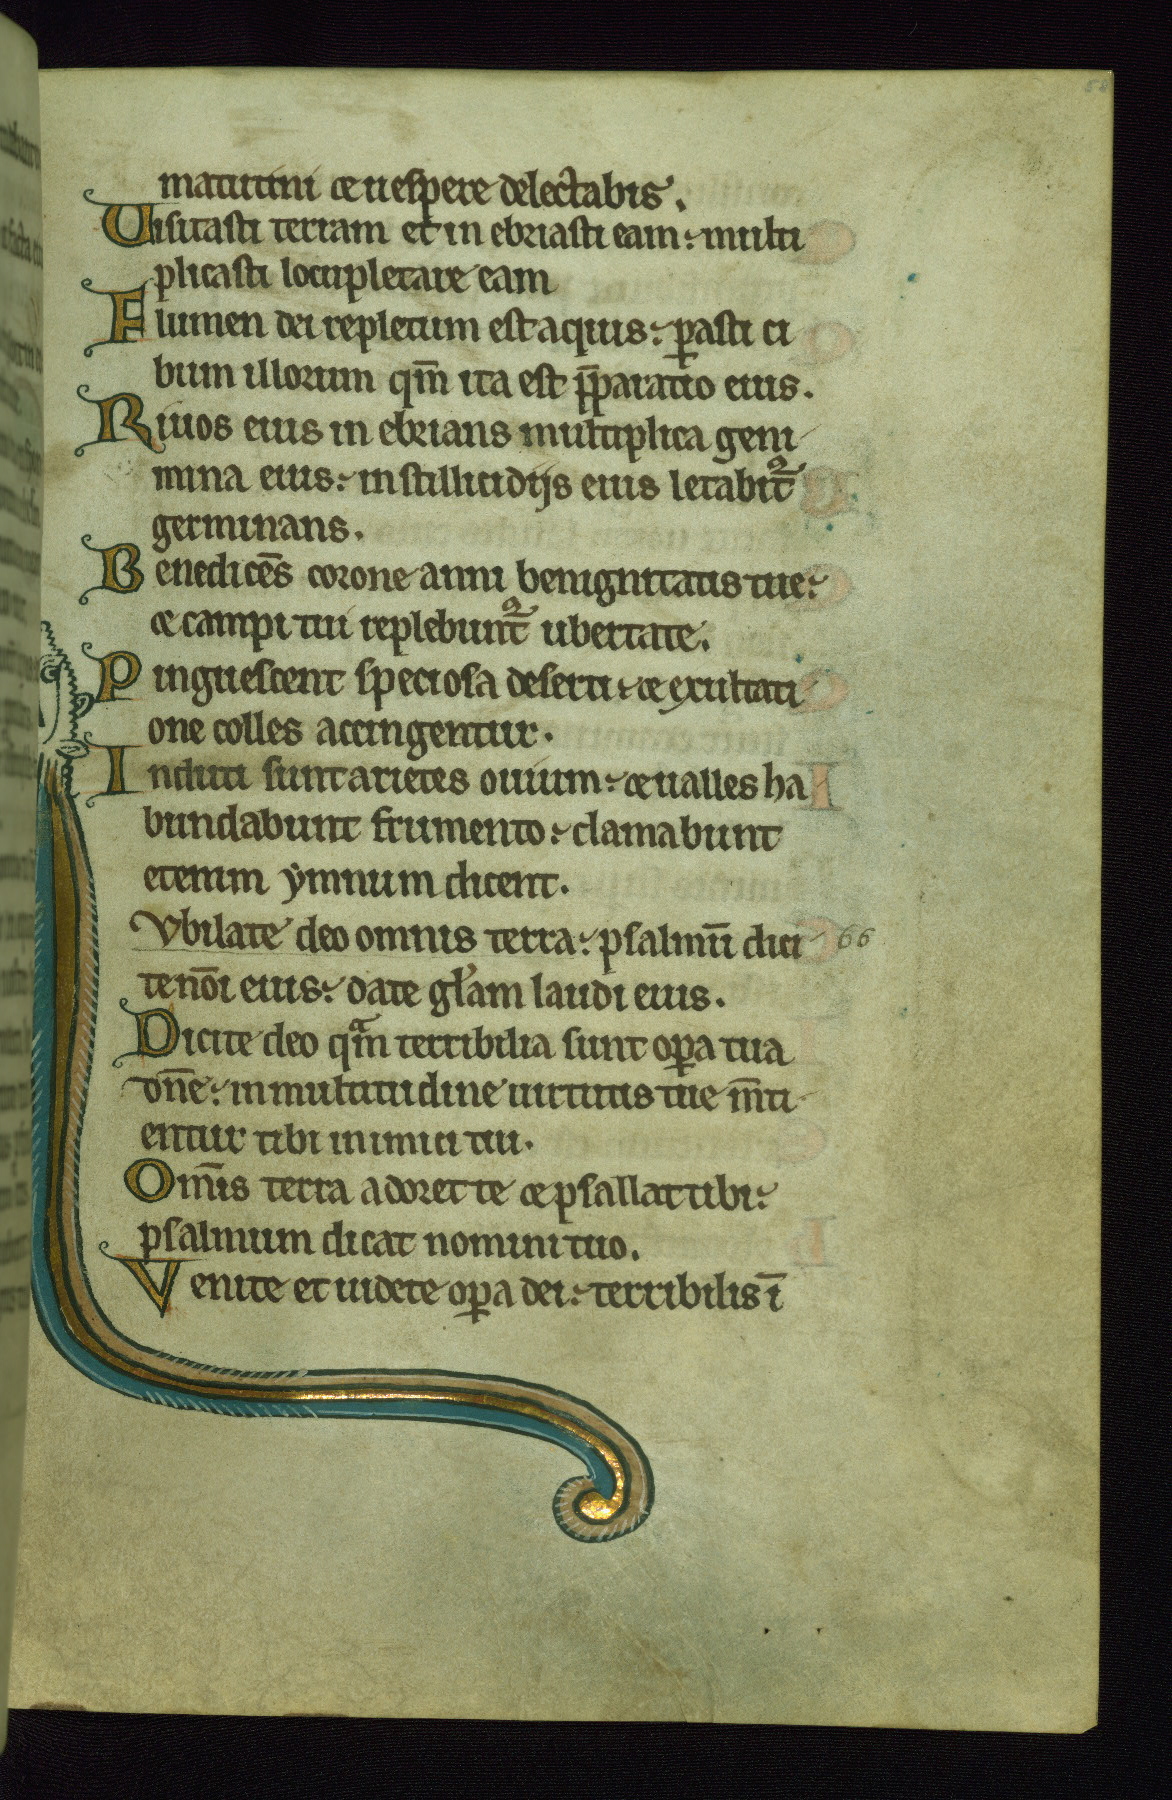 matutini et uespere delectabis.
Uisitasti terram et in ebriasti eam: multi
plicasti locupletare eam
Flumen dei repletum est aquis: ꝑasti ci
bum illorum qm̄ ita est p̄paratio eius.
Riuos eius in ebrians multiplica geni
mina eius: in stillicidijs eius letabit᷑
germinans.
Benedicēs corone anni benignitatis tue:
et campi tui replebunt᷑ ubertate.
Pinguescent speciosa deserti: et exultati
one colles accingentur.
Induti sunt arietes ouium: et ualles ha
bundabunt frumento: clamabunt
etenim ymnum dicent.
Vbilate deo omnis terra: psalmū dici 66
te nōi eius: date gl̕am laudi eius.
Dicite deo qᵃm terribilia sunt oꝑa tua
dn̄e: in multitudine uirtutis tue m̄ti
entur tibi inimici tui.
Om̄is terra adoret te et psallat tibi:
psalmum dicat nomini tuo.
Venite et uidete oꝑa dei: terribilis ī